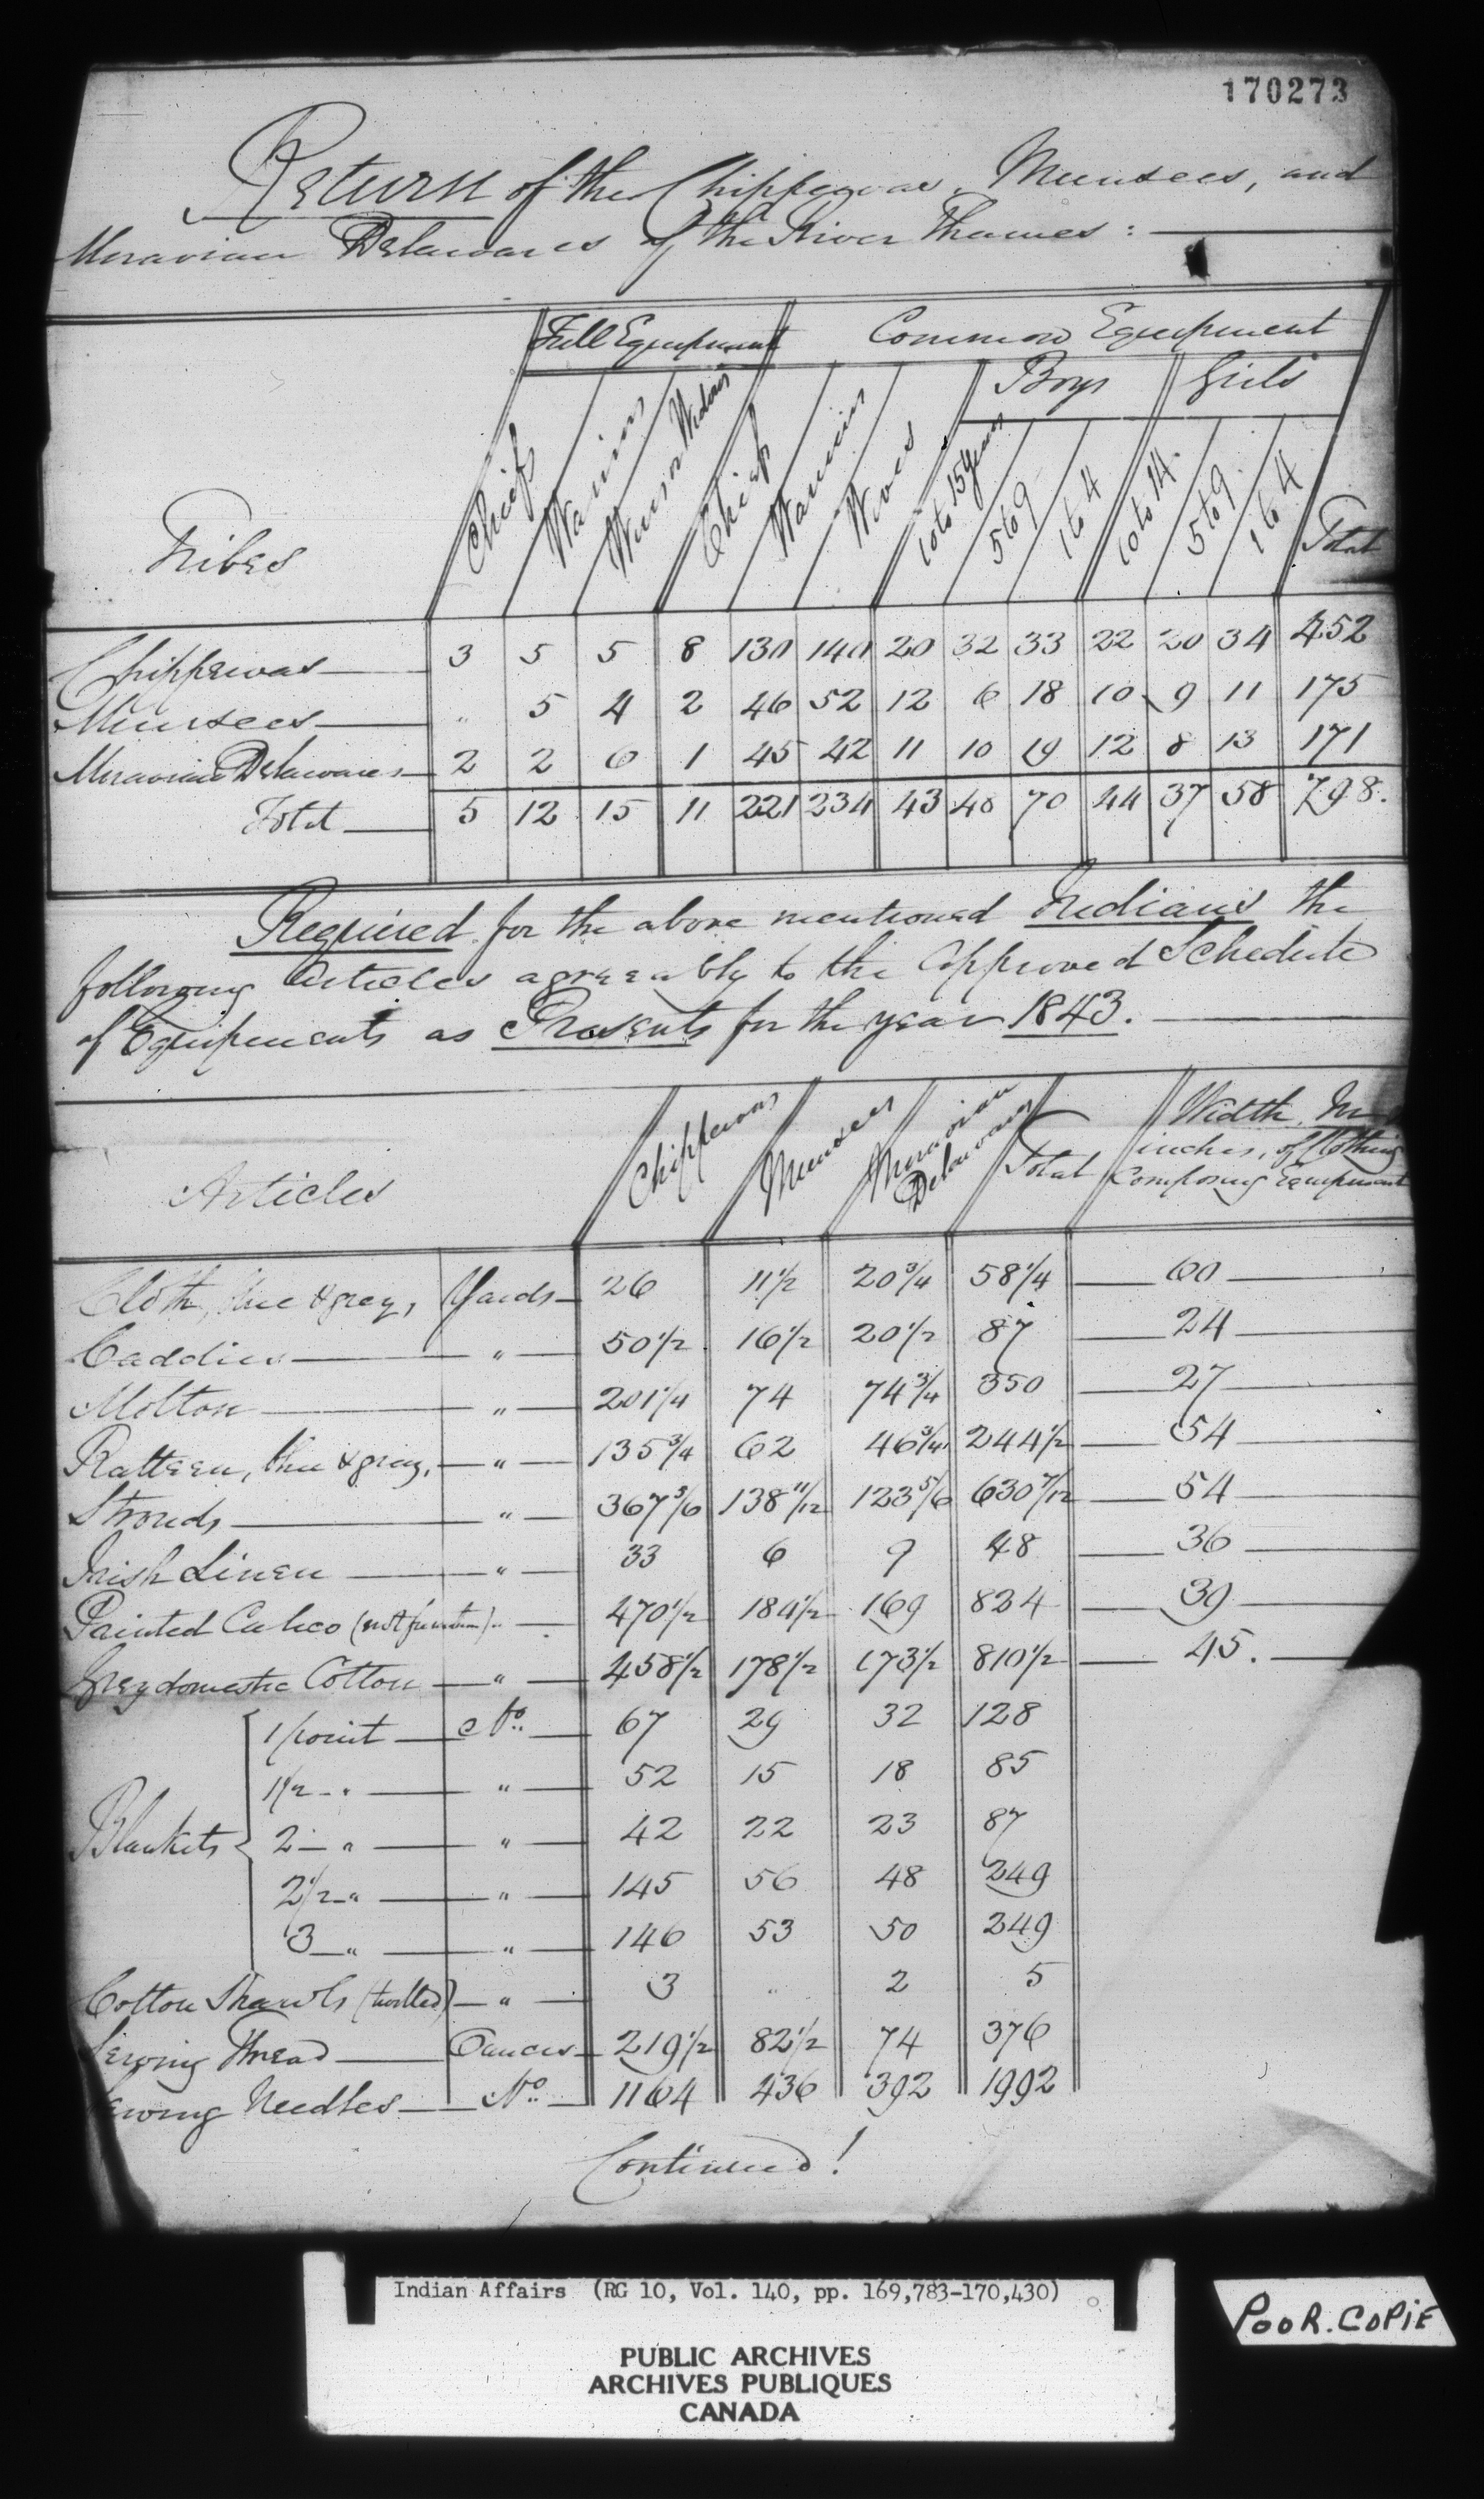 170273
Return of the Chippewas, Munsees, and
Moravian Delawares of the River Thames:
Full Equipment Common Equipment
Boys Girls
Tribes Chiefs Warriors Wives or Widows Chiefs Warriors Wives 10 to 15 years 5 to 9 1 to 4 10 to 14. 5 to 9. 1 to 4 Total
Chippewas 3 5 5 8 130 140 20 32 33 22 20 34 452
Munsees " 5 4 2 46 52 12 6 18 10 9 11 175
Moravian Delawares 2 2 6 1 45 42 11 10 19 12 8 13 171
Total 5 12 15 11 221 234 43 48 70 44 37 58 798.
Required for the above mentioned Indians the
following Articles agreeably to the approved Schedule
of Equipments as Presents for the year 1843.
Articles Chippewas Munsees Moravian Delawares Total Width, In inches, of Clothing Composing Equipment
Cloth, blue & grey, Yards 26 11 1/2 20 3/4 58 1/4 60
Caddies " 50 1/2 16 1/2 20 1/2 87 24
Molton " 201 1/4 74 74 3/4 350 27
Ratteen, blue & grey, " 135 3/4 62 46 3/4 244 1/2 54
Strouds " 367 5/6 138 11/12 123 5/6 630 7/12 54
Irish Linen " 33 6 9 48 36
Printed Calico (not furniture) " 470 1/2 184 1/2 169 824 39
Grey domestic Cotton " 458 1/2 178 1/2 173 1/2 810 1/2 45.
Blankets 1 point No. 67 29 32 128
1 1/2 " " 52 15 18 85
2 " " 42 22 23 87
2 1/2 " " 145 56 48 249
3 " " 146 53 50 249
Cotton Shawls (twilled) " 3 " 2 5
Sewing Thread Ounces 219 1/2 82 1/2 74 376
Sewing Needles No. 1164 436 392 1992
Continued!
Indian Affairs (RG 10, Vol. 140, pp. 169,783-170,430)
PUBLIC ARCHIVES
ARCHIVES PUBLIQUES
CANADA
POOR. COPIE